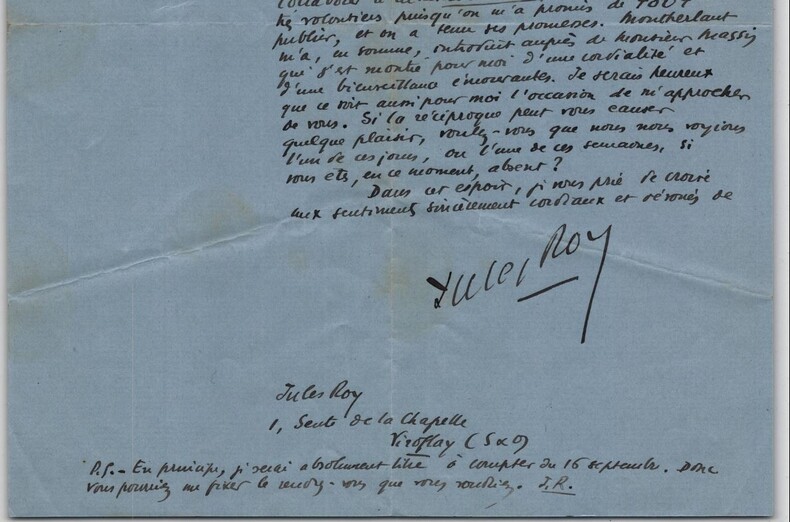 collaborer à
très volontiers puisqu'on m'a promis de TOUT
publier, et on a tenu ses promesses. Montherlant
m'a, en somme, introduit auprès de Monsieur Massis
qui s'est montré pour moi d'une cordialité et
d'une bienveillance émouvantes. Je serais heureux
que ce soit aussi pour moi l'occasion de m'approcher
de vous. Si la réciproque peut vous causer
quelque plaisir, voulez-vous que nous nous voyions
l'un de ces jours, ou l'une de ces semaines, si
vous êtes, en ce moment, absent ?
Dans cet espoir, je vous prie de croire
aux sentiments sincèrement cordiaux et dévoués de
Jules Roy
Jules Roy
1, Sente de la Chapelle
Viroflay (S&O)
P.S.- En principe, je serai absolument libre à compter du 16 septembre. Donc
vous pourriez me fixer le rendez-vous que vous voudriez. J.R.